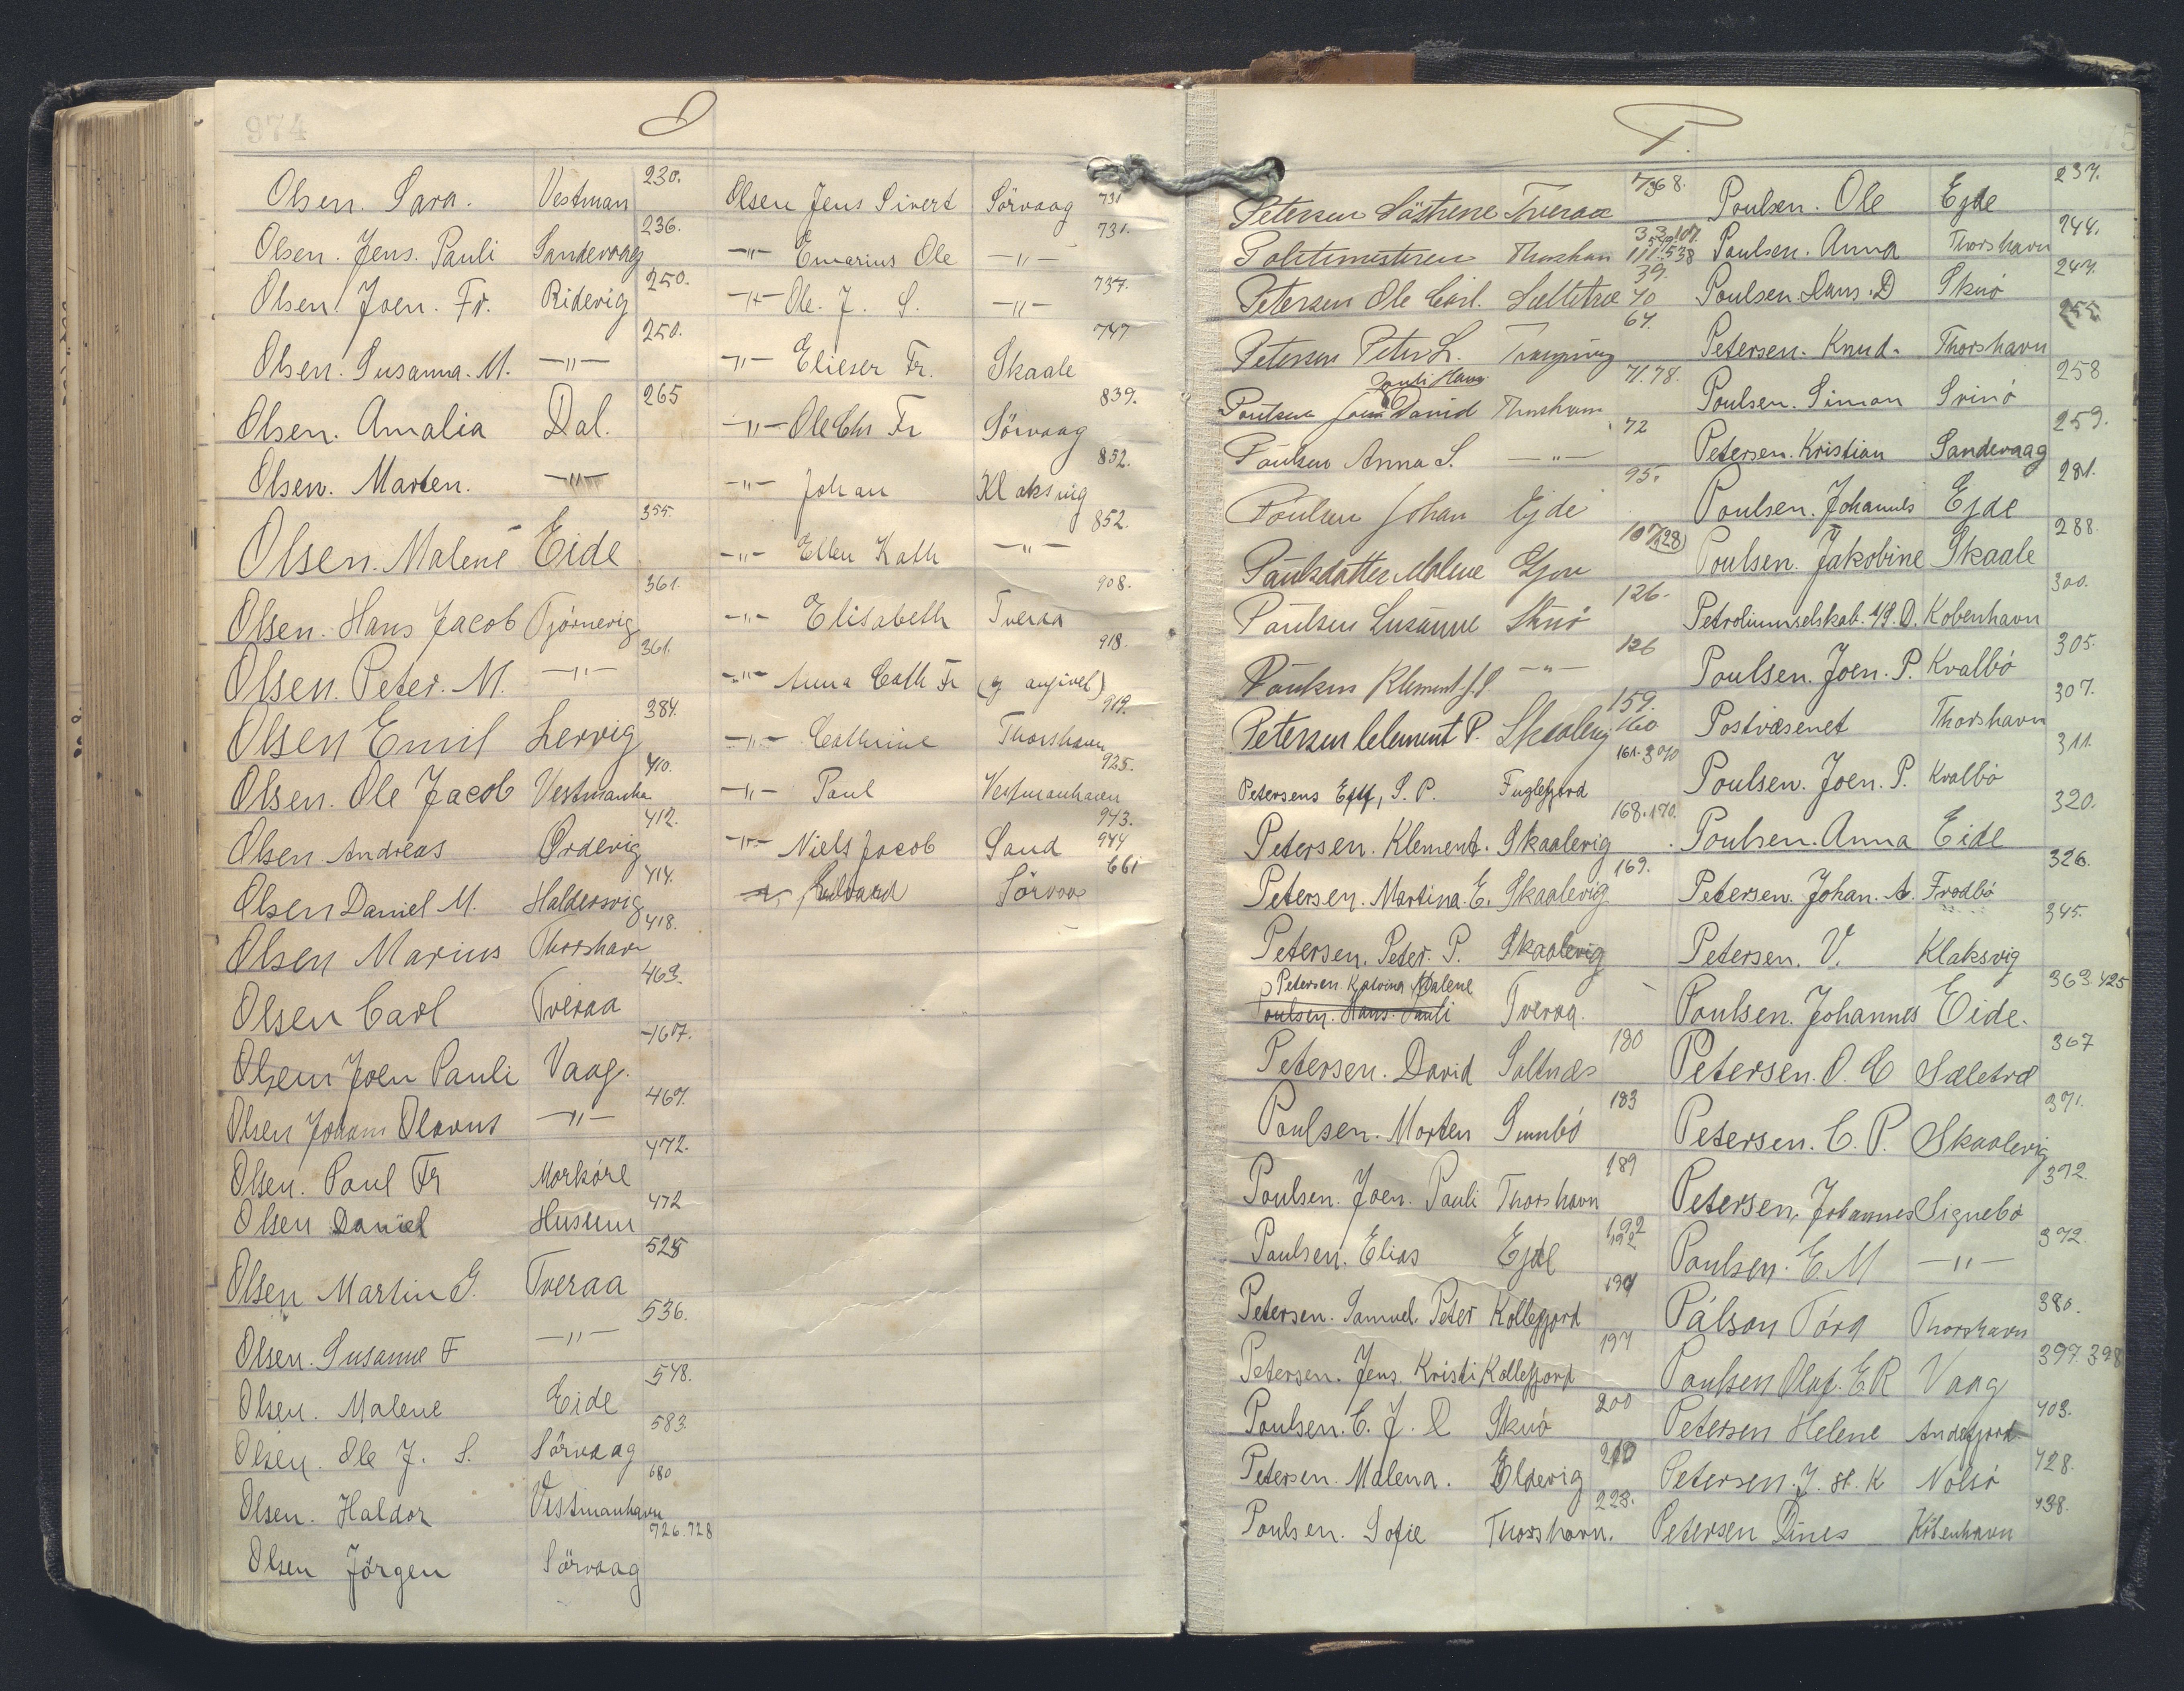 974
O
Olsen. Sara. Vestman 230.
Olsen. Jens. Pauli Sandevaag 236.
Olsen. Joen. Fr. Ridevig 250.
Olsen. Susanna. M. -"- 250.
Olsen. Amalia Dal. 265
Olsen. Marten. -"-
Olsen. Malene Eide 355.
Olsen. Hans Jacob Tjörnevig 361.
Olsen. Peter. M. -"- 361.
Olsen Emil Lervig 384.
Olsen. Ole Jacob Vestmanha 410.
Olsen Andreas Ördevig 412.
Olsen Daniel M. Haldersvig 414.
Olsen Marius Thorshavn 418.
Olsen Carl Tveraa 463.
Olsen Joen Pauli Vaag. 467.
Olsen Johan Olavus -"- 467.
Olsen. Paul Fr Morköre 472.
Olsen Daniel Husum 472
Olsen Martin G. Tveraa 525
Olsen. Susanne F -"- 536.
Olsen. Malene Eide 548.
Olsen. Ole J. S. Sörvaag 583.
Olsen. Haldor Vestmanhavn 680
Olsen Jörgen Sörvaag 726.728
Olsen Jens Sivert Sörvaag 731
-"- Emarius Ole -"- 731.
-"- Ole. J. S. -"- 737.
-"- Elieser Fr. Skaale 747
-"- Ole Chr Fr Sörvaag 839.
-"- Johan Klaksvig 852.
-"- Ellen Kath -"- 852.
-"- Elisabeth Tveraa 908.
-"- Anna Cath Fr (ej angivet) 918.
-"- Cathrine Thorshavn 919.
-"- Paul Vestmanhaven 925.
-"- Niels Jacob Sand 943. 944
-"- Edvard Sörvaa 661
P.
975
Petersen Söstrene Tveraa 768.
Politimesteren Thorshavn 538
Petersen Ole Carl. 39. 40
Petersen Peter L. 67.
Pauli Hans
Poulsen David Thorshavn 71.78.
Poulsen Anna S. -"- 72
Poulsen Johan Ejde 95.
Poulsdatter Malene Gjov 107 (128)
Poulsen Susanne Skuö 126.
Poulsen Klement J. P. -"- 126
Petersen Clement P. Skaalevig 159. 160
Petersens Eftf, S. P. Fuglefjord 161.370
Petersen. Klement. Skaalevig 168.170.
Petersen. Martina. E. Skaalevig 169.
Petersen. Peter. P. Skaalevig
Petersen Katrina Malene
Poulsen. Hans. Pauli Tveraa.
Petersen. David Saltnes 180
Poulsen. Morten Sumbö 183
Poulsen. Joen. Pauli Thorshavn 189
Poulsen. Elias Ejde 192 192
Petersen. Samuel. Peter Kollefjord 194
Petersen. Jens. Kristi Kollefjord 197
Poulsen. E. J. D Skuö 200
Petersen. Malena. Eldevig 210
Poulsen. Sofie Thorshavn. 223.
Poulsen. Ole Ejde 237.
Poulsen. Anna Thorshavn 244.
Poulsen Hans. D Skuö 247.
Petersen. Knud. Thorshavn 255.
Poulsen. Simon Svinö 258
Petersen. Kristian Sandevaag 259.
Poulsen. Johannes Ejde 281.
Poulsen. Jakobine Skaale 288.
Petroliumselskab. A/S. D. Kobenhavn 300.
Poulsen. Joen. P. Kvalbö 305.
Postvæsenet Thorshavn 307.
Poulsen. Joen. P. Kvalbö 311.
Poulsen. Anna Eide 320.
Petersen. Johan. A. Frodbö 326.
Petersen. V. Klaksvig 345.
Poulsen. Johannes Eide. 363.425
Petersen. O. C Sæletræ 367
Petersen. C. P. Skaalevig 371.
Petersen. Johannes Signebö 372.
Poulsen. E M -"- 372.
Pálson Tóra Thorshavn 380.
Poulsen Olaf. E R Vaag 397.398
Petersen Helene Andefjord 403.
Petersen. J. st. K Nolsö 428.
Petersen Dines Köbenhavn 438.